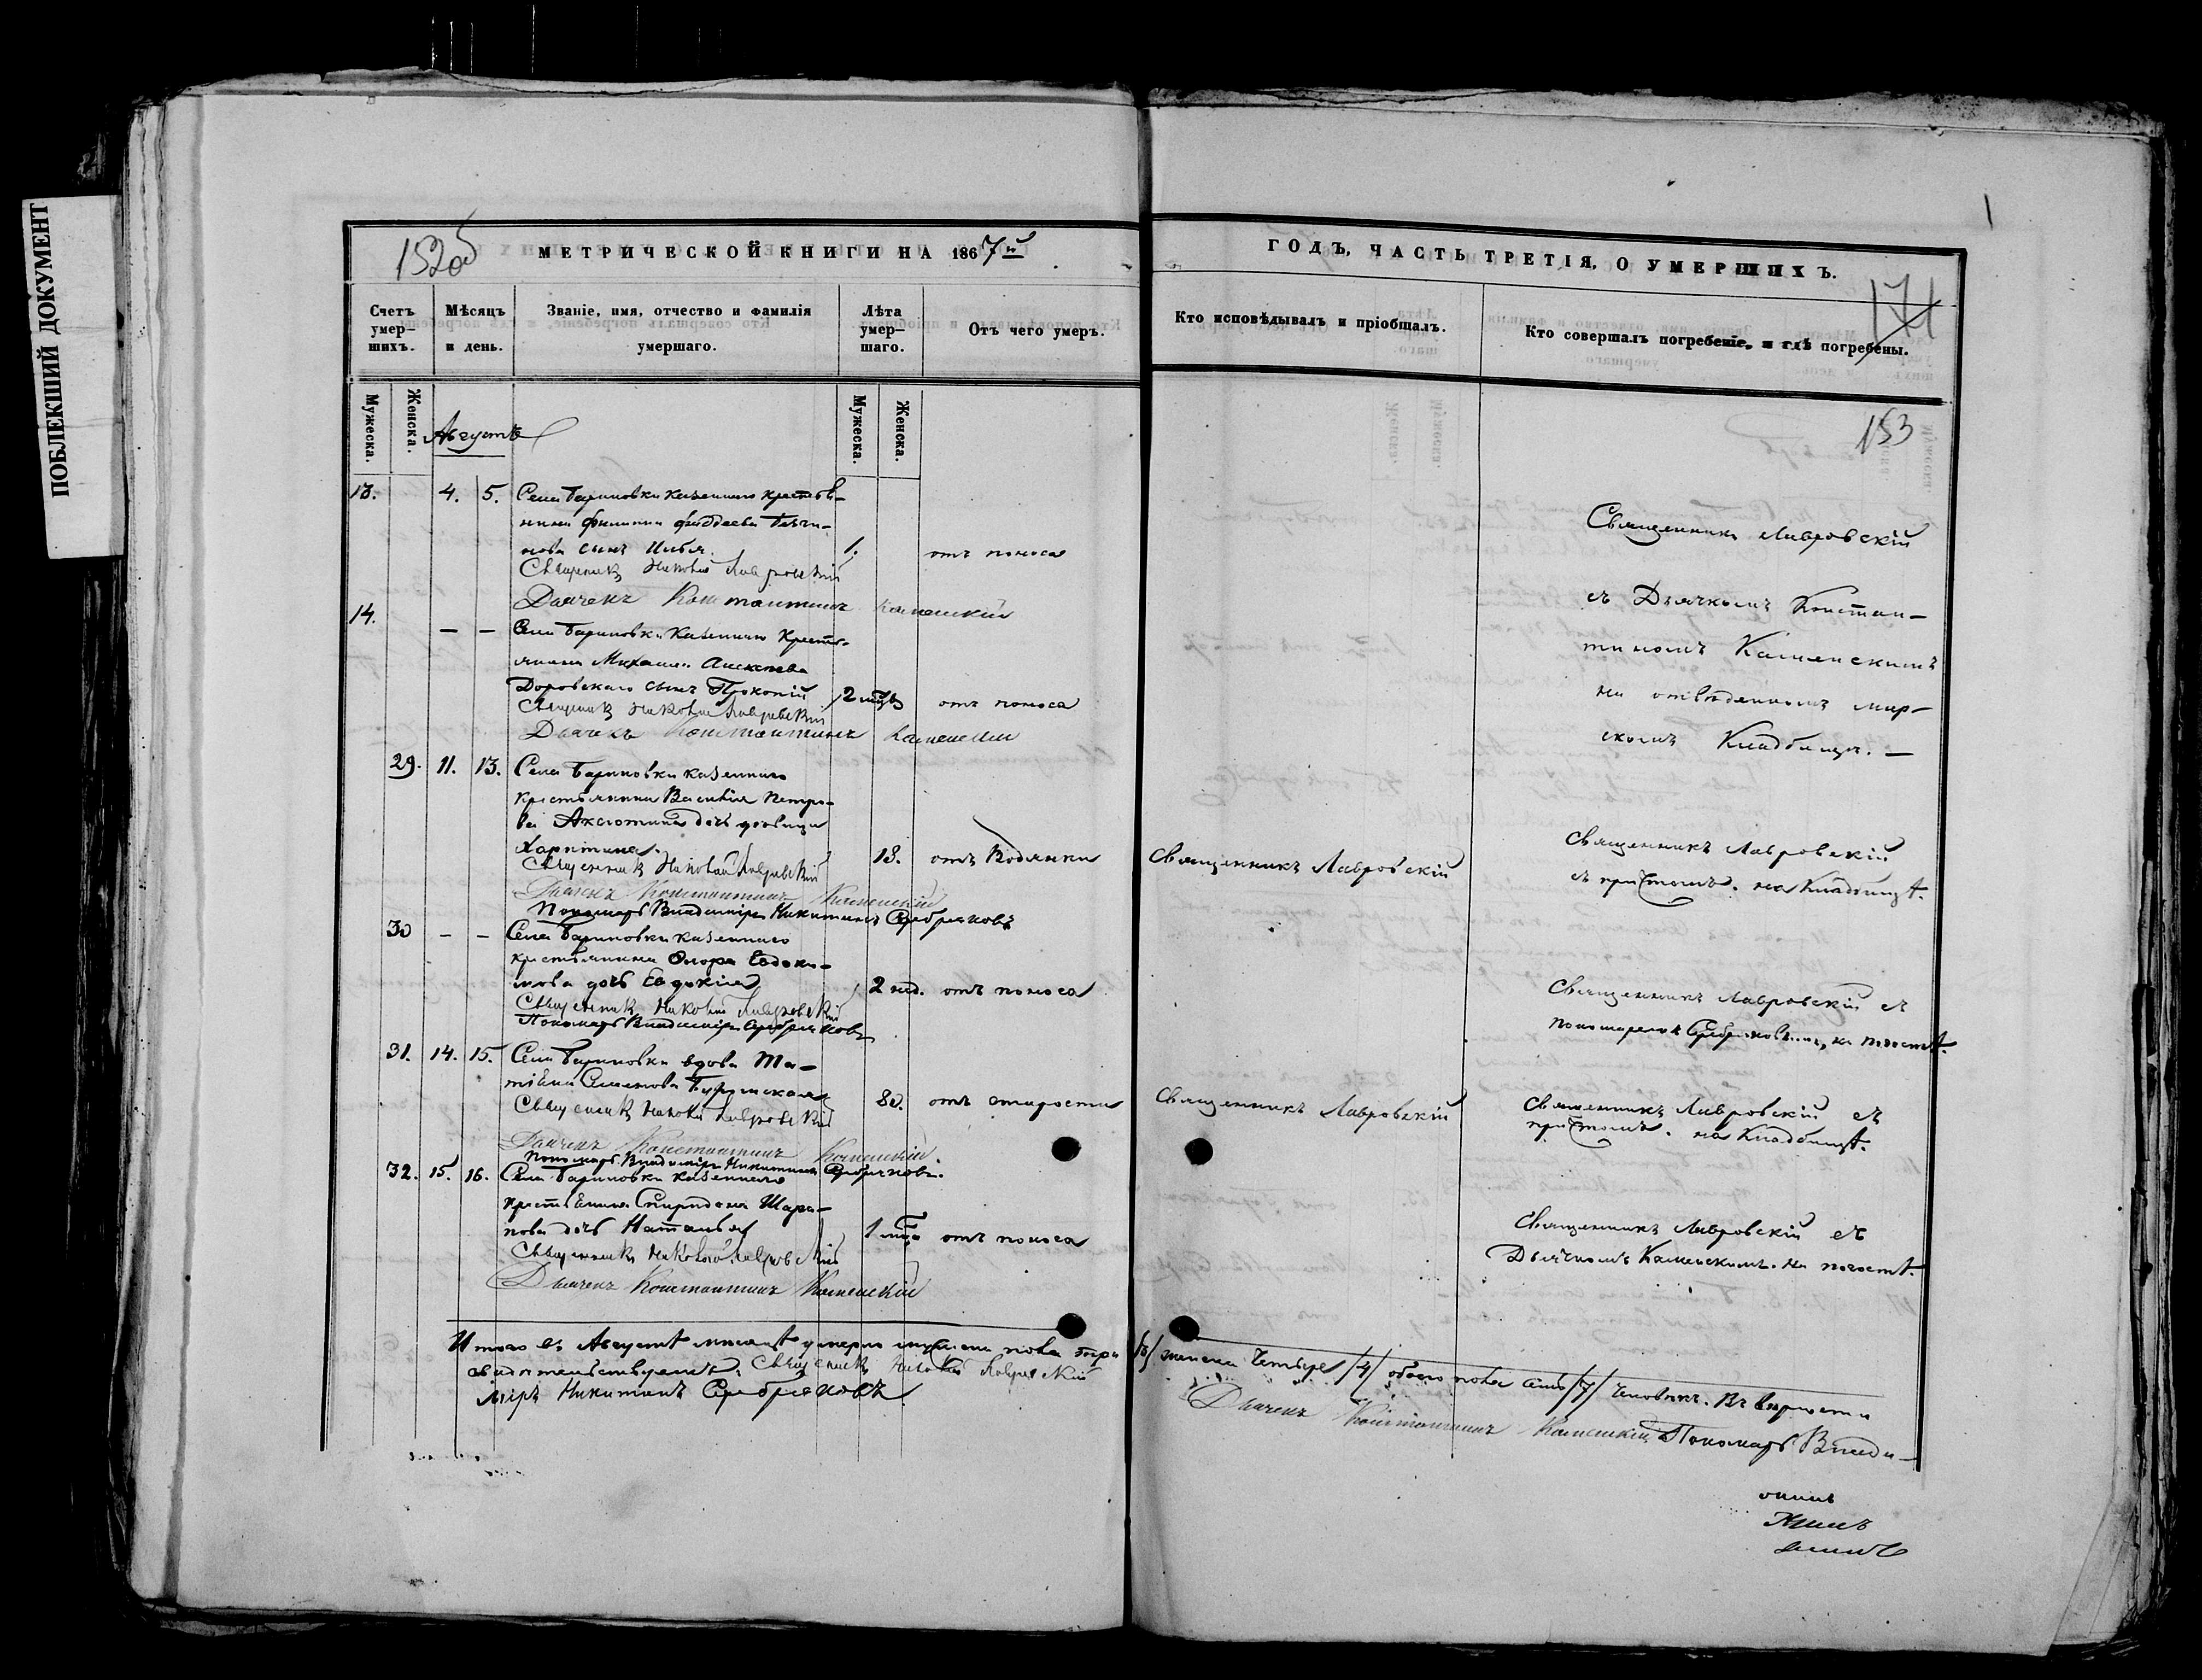 ПОБЛЕКШИЙ ДОКУМЕНТ
152об
МЕТРИЧЕСКОЙ КНИГИ НА 1867й
ГОДЪ, ЧАСТЬ ТРЕТІЯ, О УМЕРШИХЪ.
171
Счетъ умер-шихъ.
Мѣсяцъ и день.
Званіе, имя, отчество и фамилія умершаго.
Лѣта умер-шаго.
Отъ чего умеръ.
Кто исповѣдывалъ и пріобщалъ.
Кто совершалъ погребеніе, и гдѣ погребены.
Мужеска.
Женска.
Мужеска.
Женска.
Августъ
153
13. 4. 5. Села Бариновки казеннаго крестья-
нина Филиппа Фаддеева
сынъ Илья. 1. отъ поноса
Священникъ Николай Лавровскій
Дьячекъ Константинъ Каменскій
Священникъ Лавровскій
съ Дьячкомъ Констан-
тиномъ Каменскимъ
на отведенномъ мир-
скомъ Кладбищѣ.
14. — — Села Бариновки Казеннаго Кресть-
янина Михаила Алексѣева
сынъ Прокопій 2 отъ поноса
Священникъ Николай Лавровскій
Дьячекъ Константинъ Каменскій
29. 11. 13. Села Бариновки казеннаго
крестьянина Василія Петро-
ва Аксютина дочь дѣвица
Харитина. 18. отъ водянки
Священникъ Лавровскій
Священникъ Лавровскій
съ причтомъ. на Кладбищѣ.
Священникъ Николай Лавровскій
Дьячекъ Константинъ Каменскій
Пономарь Владиміръ Никитинъ Серебряковъ
30 — — Села Бариновки казеннаго
крестьянина Егора Евдоки-
мова дочь Евдокія 2 нед. отъ поноса
Священникъ Лавровскій съ
пономаремъ Серебряковымъ, на погостѣ.
Священникъ Николай Лавровскій
Пономарь Владиміръ Серебряковъ
31. 14. 15. Села Бариновки вдова Та-
тіана Семенова 80. отъ старости
Священникъ Лавровскій
Священникъ Лавровскій съ
причтомъ. на Кладбищѣ.
Священникъ Николай Лавровскій
Дьячекъ Константинъ Каменскій.
Пономарь Владиміръ Никитинъ Серебряковъ.
32. 15. 16. Села Бариновки казеннаго
крестьянина Спиридона Шара-
пова дочь Наталья 1 отъ поноса
Священникъ Лавровскій съ
Дьячкомъ Каменскимъ. на погостѣ.
Священникъ Николай Лавровскій
Дьячекъ Константинъ Каменскій
Итого въ Августѣ мѣсяцѣ умерло мужеска пола три /3/ женска четыре /4/ обоего пола семь /7/ человѣкъ. Въ вѣрности
свидѣтельствуемъ: Священникъ Николай Лавровскій Дьячекъ Константинъ Каменскій Пономарь Влади-
міръ Никитинъ Серебряковъ.